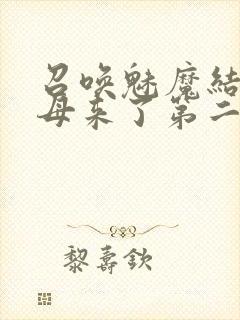 召唤魅魔結
母来了第二
黎壽欽